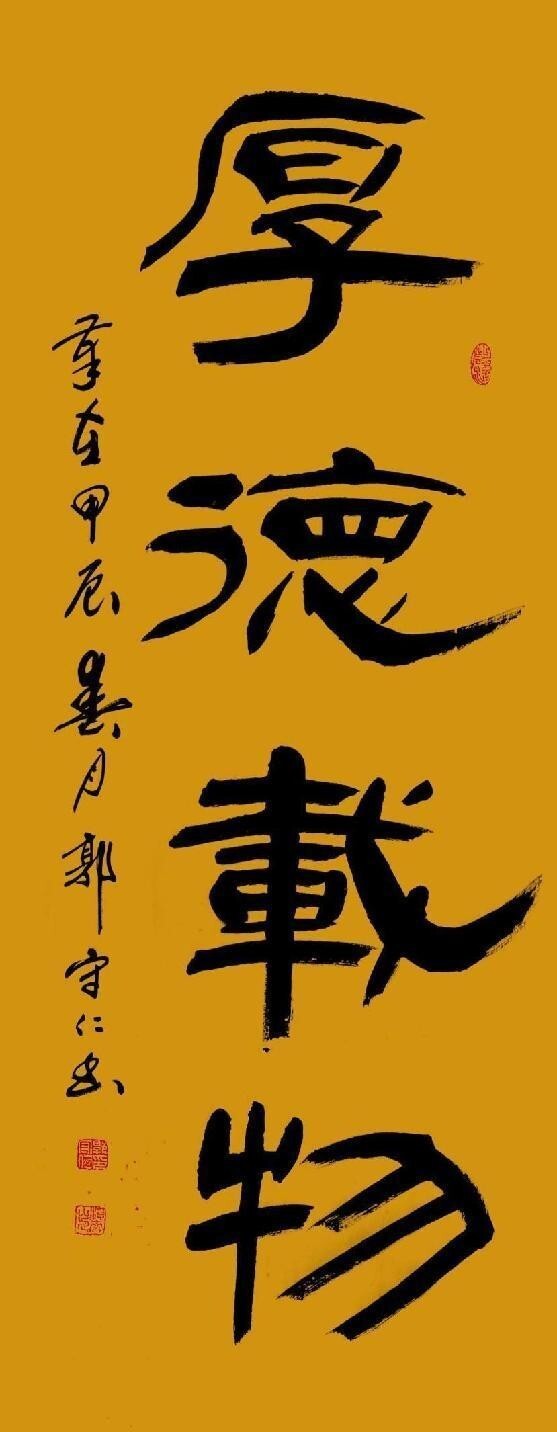 厚德載物
在甲辰春月郭守仁书